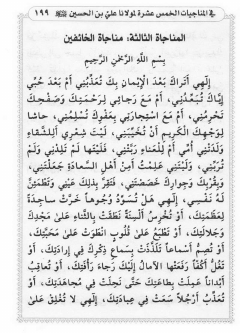 في المناجيات الخمس عشرة لمولانا علي بن الحسين ﷺ ١٩٩
المناجاة الثالثة: مناجاة الخائفين
بِسْمِ اللَّهِ الرَّحْمَنِ الرَّحِيمِ
إِلَهِي أَتَرَاكَ بَعْدَ الْإِيمَانِ بِكَ تُعَذِّبُنِي، أَمْ بَعْدَ حُبِّي
إِيَّاكَ تُبَعِّدُنِي، أَمْ مَعَ رَجَائِي لِرَحْمَتِكَ وَصَفْحِكَ
تَحْرِمُنِي، أَمْ مَعَ اسْتِجَارَتِي بِعَفْوِكَ تُسْلِمُنِي، حَاشَا
لِوَجْهِكَ الْكَرِيمِ أَنْ تُخَيِّبَنِي، لَيْتَ شِعْرِي أَلِلشَّقَاءِ
وَلَدَتْنِي أُمِّي أَمْ لِلْعَنَاءِ رَبَّتْنِي، فَلَيْتَهَا لَمْ تَلِدْنِي وَلَمْ
تُرَبِّنِي، وَلَيْتَنِي عَلِمْتُ أَمِنْ أَهْلِ السَّعَادَةِ جَعَلْتَنِي،
وَبِقُرْبِكَ وَجِوَارِكَ خَصَصْتَنِي، فَتَقِرَّ بِذَلِكَ عَيْنِي وَتَطْمَئِنَّ
لَهُ نَفْسِي، إِلَهِي هَلْ تُسَوِّدُ وُجُوهاً خَرَّتْ سَاجِدَةً
لِعَظَمَتِكَ، أَوْ تُخْرِسُ أَلْسِنَةً نَطَقَتْ بِالثَّنَاءِ عَلَى مَجْدِكَ
وَجَلَالَتِكَ، أَوْ تَطْبَعُ عَلَى قُلُوبٍ انْطَوَتْ عَلَى مَحَبَّتِكَ،
أَوْ تُصِمُّ أَسْمَاعاً تَلَذَّذَتْ بِسَمَاعِ ذِكْرِكَ فِي إِرَادَتِكَ، أَوْ
تَغُلُّ أَكُفّاً رَفَعَتْهَا الْآمَالُ إِلَيْكَ رَجَاءَ رَأْفَتِكَ، أَوْ تُعَاقِبُ
أَبْدَاناً عَمِلَتْ بِطَاعَتِكَ حَتَّى نَحِلَتْ فِي مُجَاهَدَتِكَ، أَوْ
تُعَذِّبُ أَرْجُلاً سَعَتْ فِي عِبَادَتِكَ، إِلَهِي لَا تُغْلِقْ عَلَى